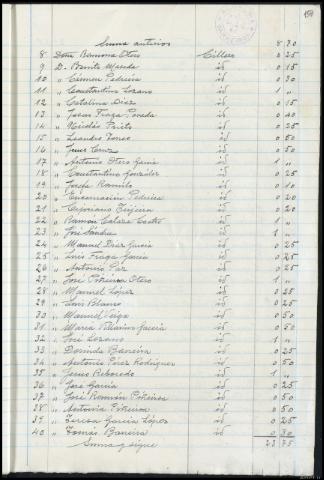 Suma anterior 8 30
8 Dña Ramona Otero Cillero 0 25
9 D. Benito Maseda id 0 15
10 " Cármen Pedreira id 0 30
11 " Constantino Lozano id 1 "
12 " Catalina Diaz id 0 15
13 " Jesús Fraga Parada id 0 40
14 " Nicolás Prieto id 0 25
15 " Leandro id 0 50
16 " Cruz id 0 50
17 " Antonio Otero García id 1 "
18 " Constantino González id 0 25
19 " Josefa Ramilo id 0 10
20 " Encarnación Pedreira id 0 20
21 " Cipriano Teijeira id 0 20
22 " Ramón Castro id 1 "
23 " José Sandra id 1 "
24 " Manuel Diaz García id 0 25
25 " Luis Fraga García id 0 25
26 " Antonia Paz id 0 25
27 " José Piñeiroa Otero id 1 "
28 " Manuel López id 0 25
29 " Luis Blanco id 0 25
30 " Manuel Veiga id 0 50
31 " María Pilarino García id 0 50
32 " José Lozano id 1 "
33 " Dorinda Baneira id 0 25
34 " Antonio Pérez Rodríguez id 0 50
35 " Jesús Reboredo id 1 "
36 " José García id 0 25
37 " José Ramón Piñeiroa id 0 50
38 " Antonia Piñeiroa id 0 50
39 " Teresa García López id 0 25
40 " Tomás Baneira id 0 30
Suma y sigue 23 75